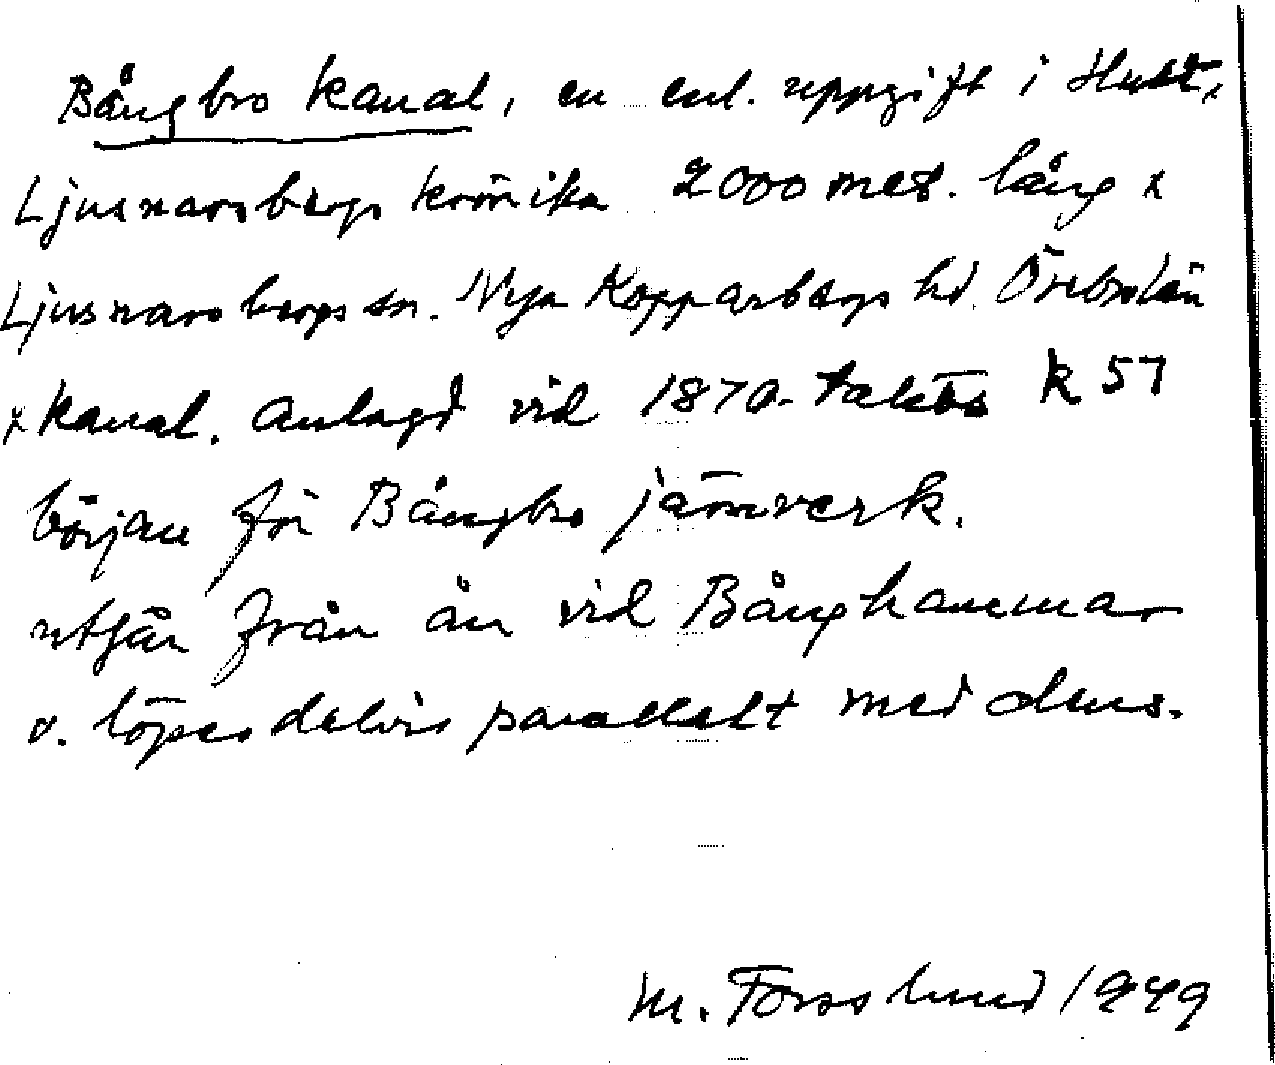 Bångbro kanal, en enl. uppgift i Hult,
Ljusnarsbergs krönika 2000 met. lång x
Ljusnarsbergs sn. Nya Kopparbergs hd. Örebro län
x kanal. Anlagd vid 1870-talets K 57
början för Bångbro järnverk.
utgår från ån vid Bånghammar
o. löper delvis parallellt med dens.
M. Forsslund 1949